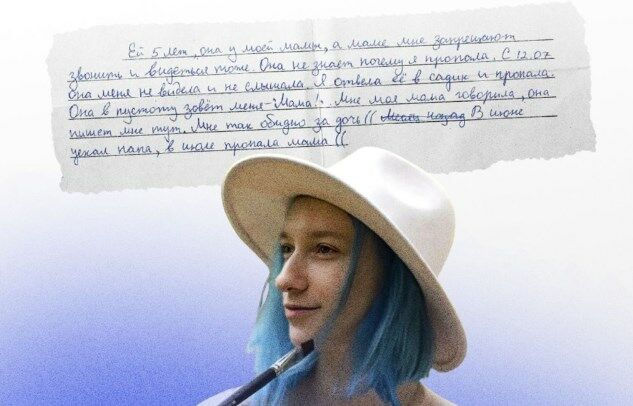 Ей 5 лет, она у моей мамы, а маме мне запрещают
звонить и видеться тоже. Она не знает почему я пропала. С 12.07
она меня не видела и не слышала. Я отвела её в садик и пропала.
Она в пустоту зовёт меня-"Мама!". Мне моя мама говорила, она
пишет мне тут. Мне так обидно за дочь(( Месяц назад В июне
уехал папа, в июле пропала мама ((